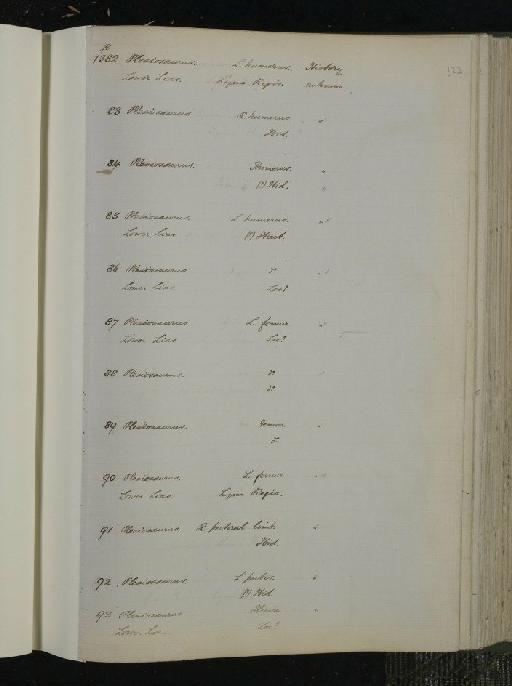 R
1582 Plesiosaurus. L. humerus. History
Lower Lias. Lyme Regis. unknown
83 Plesiosaurus R. humerus "
Ibid.
84 Plesiosaurus. Humerus. "
(?) Ibid. "
85 Plesiosaurus. L. humerus. "
Lower Lias (?) Ibid.
86 Plesiosaurus do "
Lower Lias. Loc?
87 Plesiosaurus L. femur "
Lower Lias Loc?
88 Plesiosaurus do "
do
89 Plesiosaurus. femur "
90 Plesiosaurus. L. femur "
Lower Lias. Lyme Regis.
91 Plesiosaurus R. pectoral limb. "
Ibid.
92. Plesiosaurus. L. pubis. "
(?) Ibid
93 Plesiosaurus "
Lower Lias. Loc?